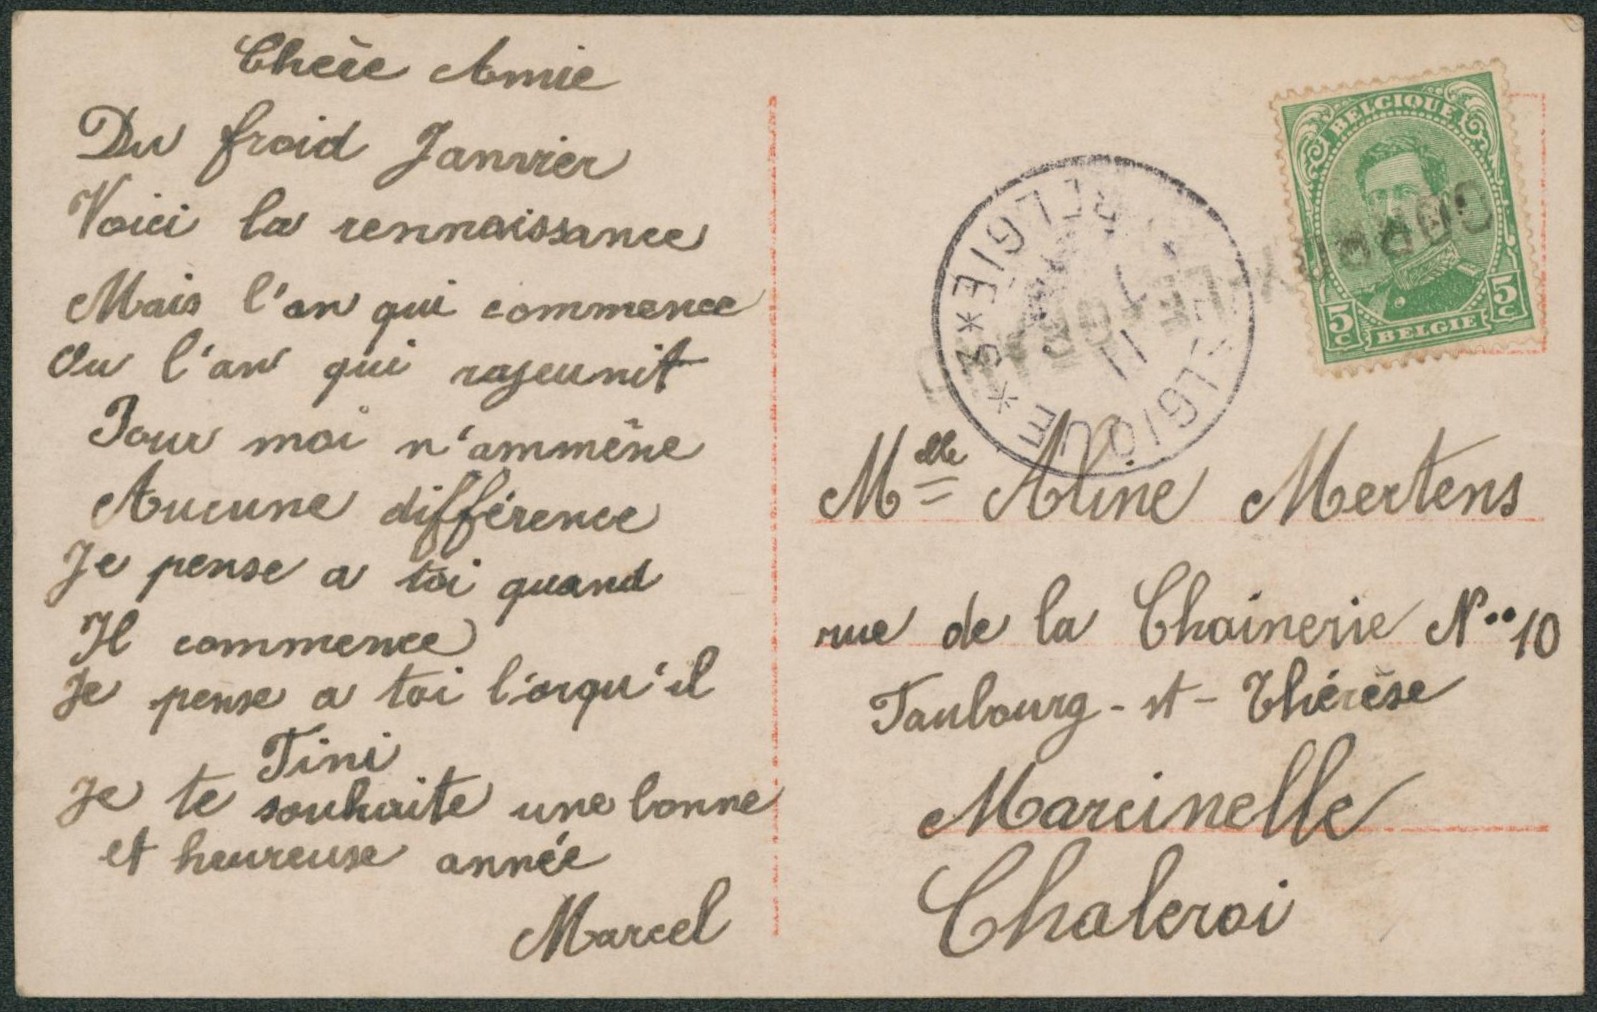 Chère Amie
Du froid Janvier
Voici la rennaissance
Mais l'an qui commence
Ou l'an qui rajeunit
Pour moi n'ammène
Aucune différence
Je pense a toi quand
Il commence
Je pense a toi l'orqu'il
Fini
Je te souhaite une bonne
et heureuse année
Marcel
BELGIQUE
5c
BELGIE
5c
BELGIE * 3 *
11
Melle Aline Mertens
rue de la Chainerie N.. 10
Faubourg - st - Thérèse
Marcinelle
Chaleroi